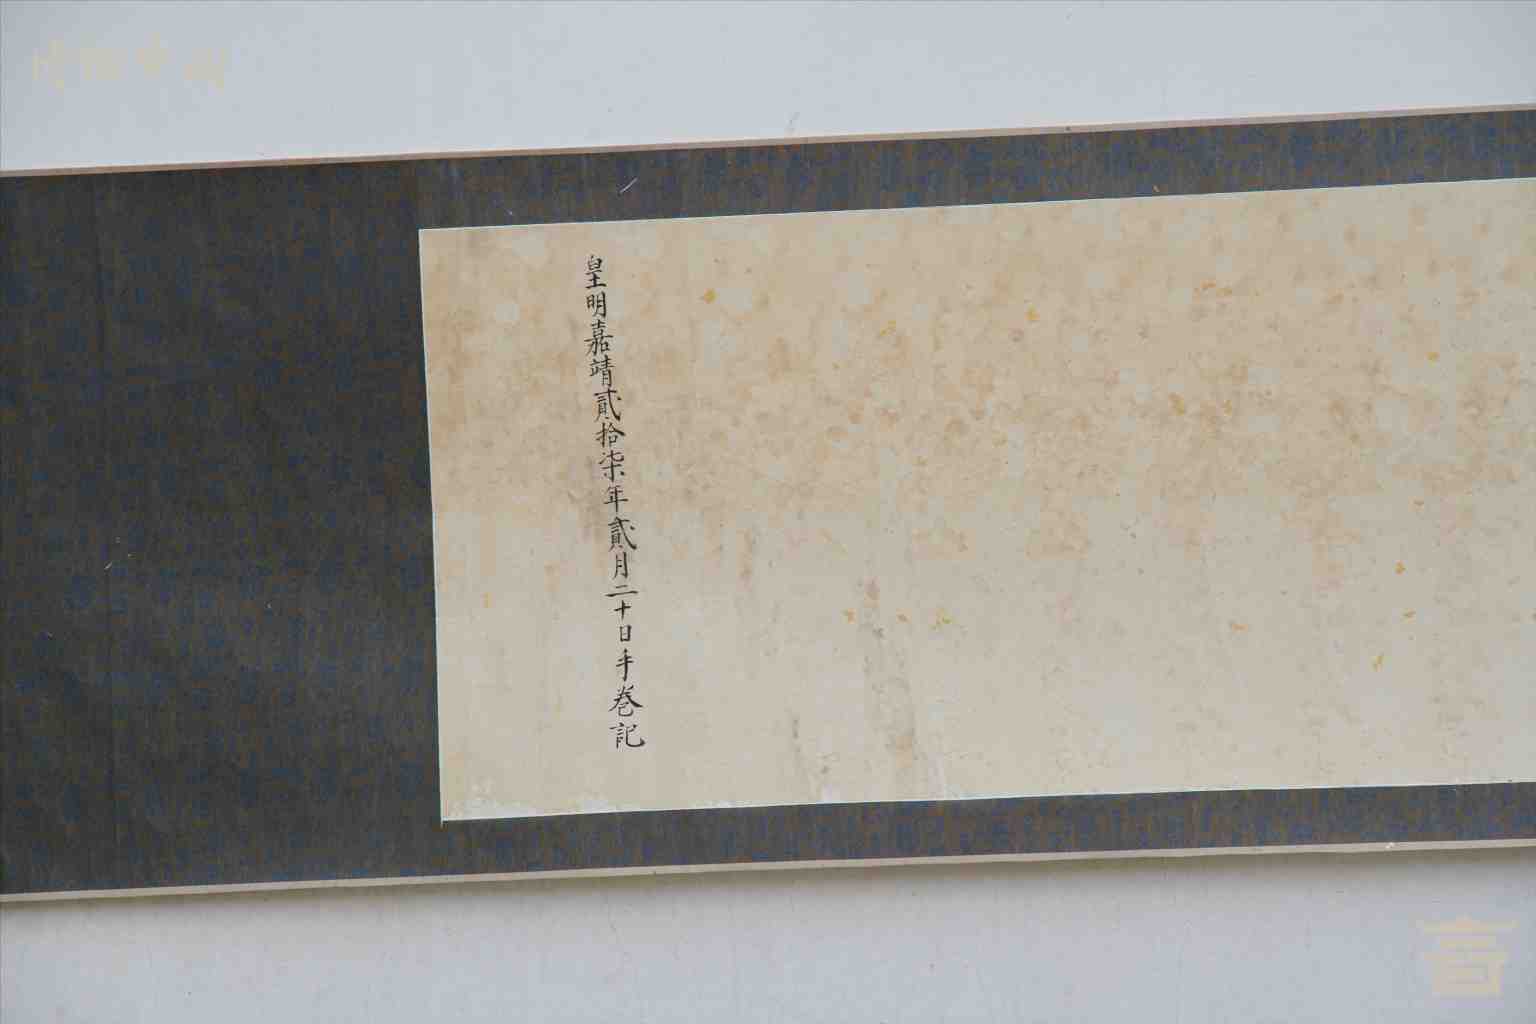 皇明嘉靖貳拾柒年貳月二十日手卷記